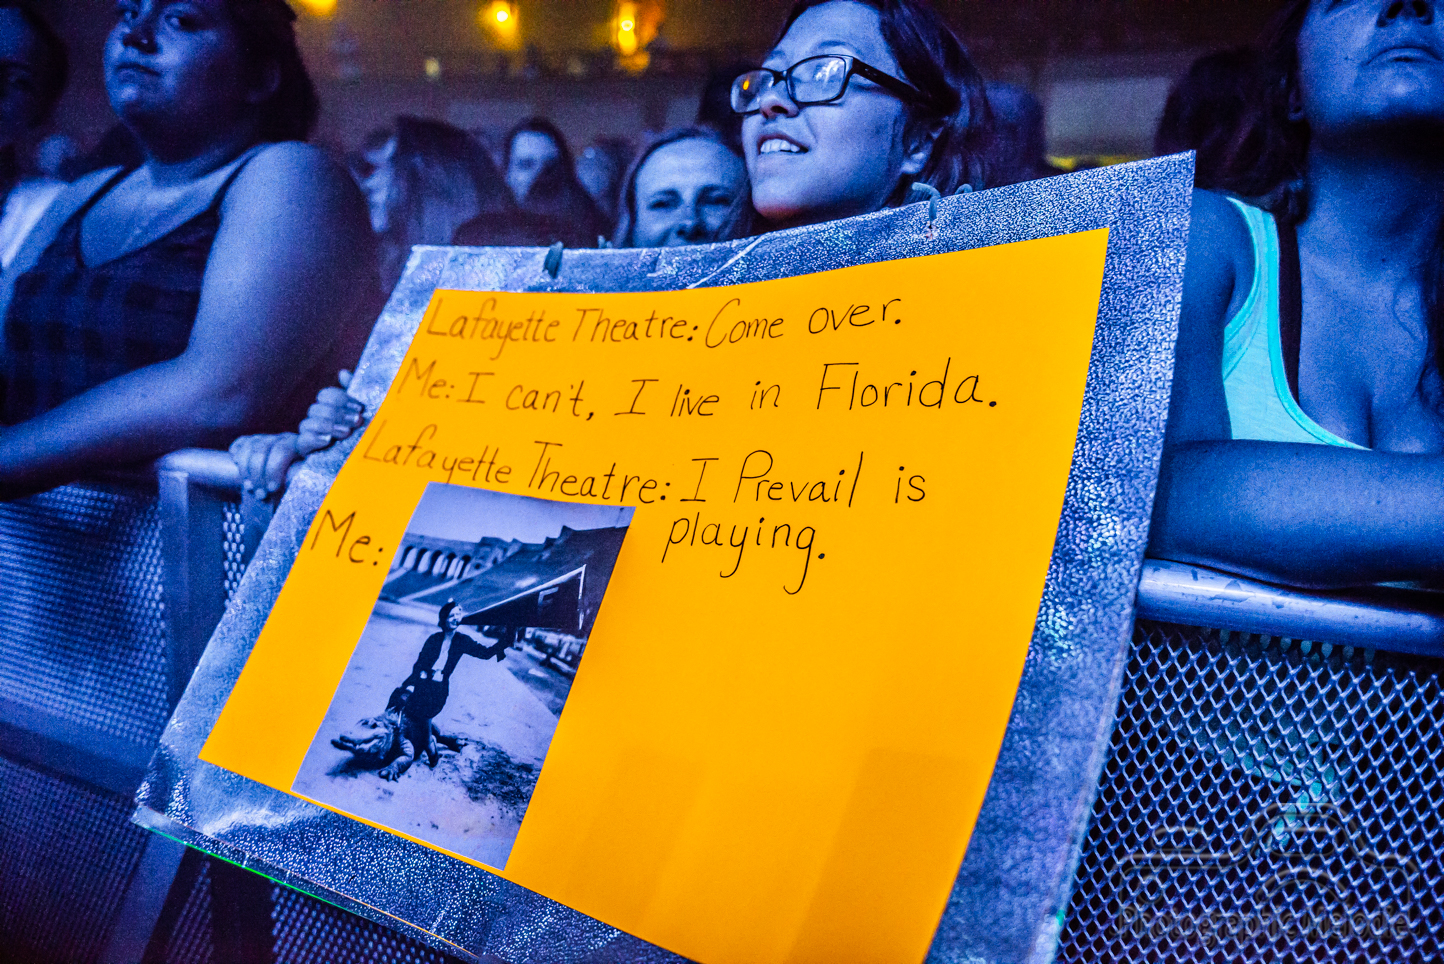 Lafayette Theatre: Come over.
Me: I can't, I live in Florida.
Lafayette Theatre: I Prevail is
playing.
Me:
F
Photographic Melodie